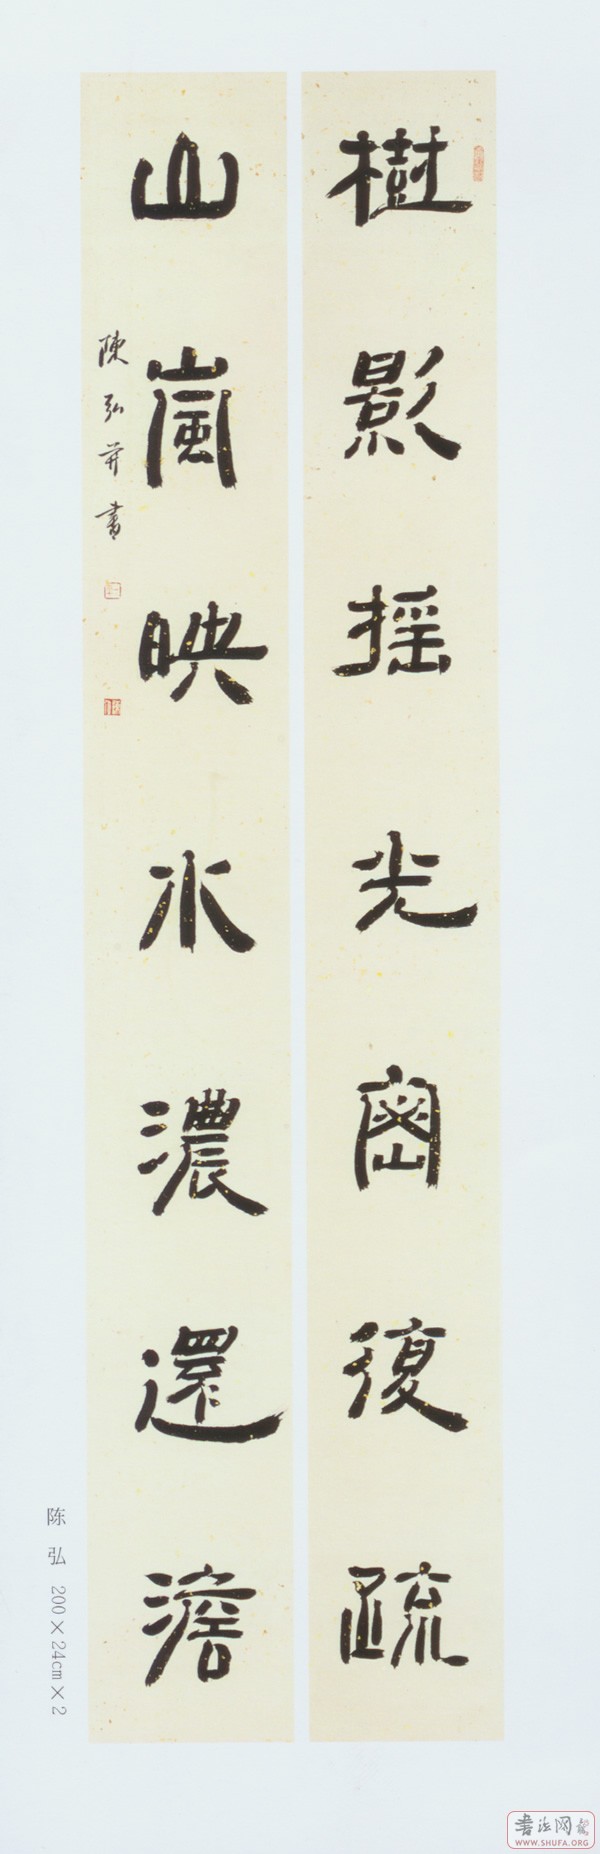 樹影搖光密復疏
山嵐映水濃還澹
陳弘并書
陈 弘 200×24cm×2
書法网
WWW.SHUFA.ORG